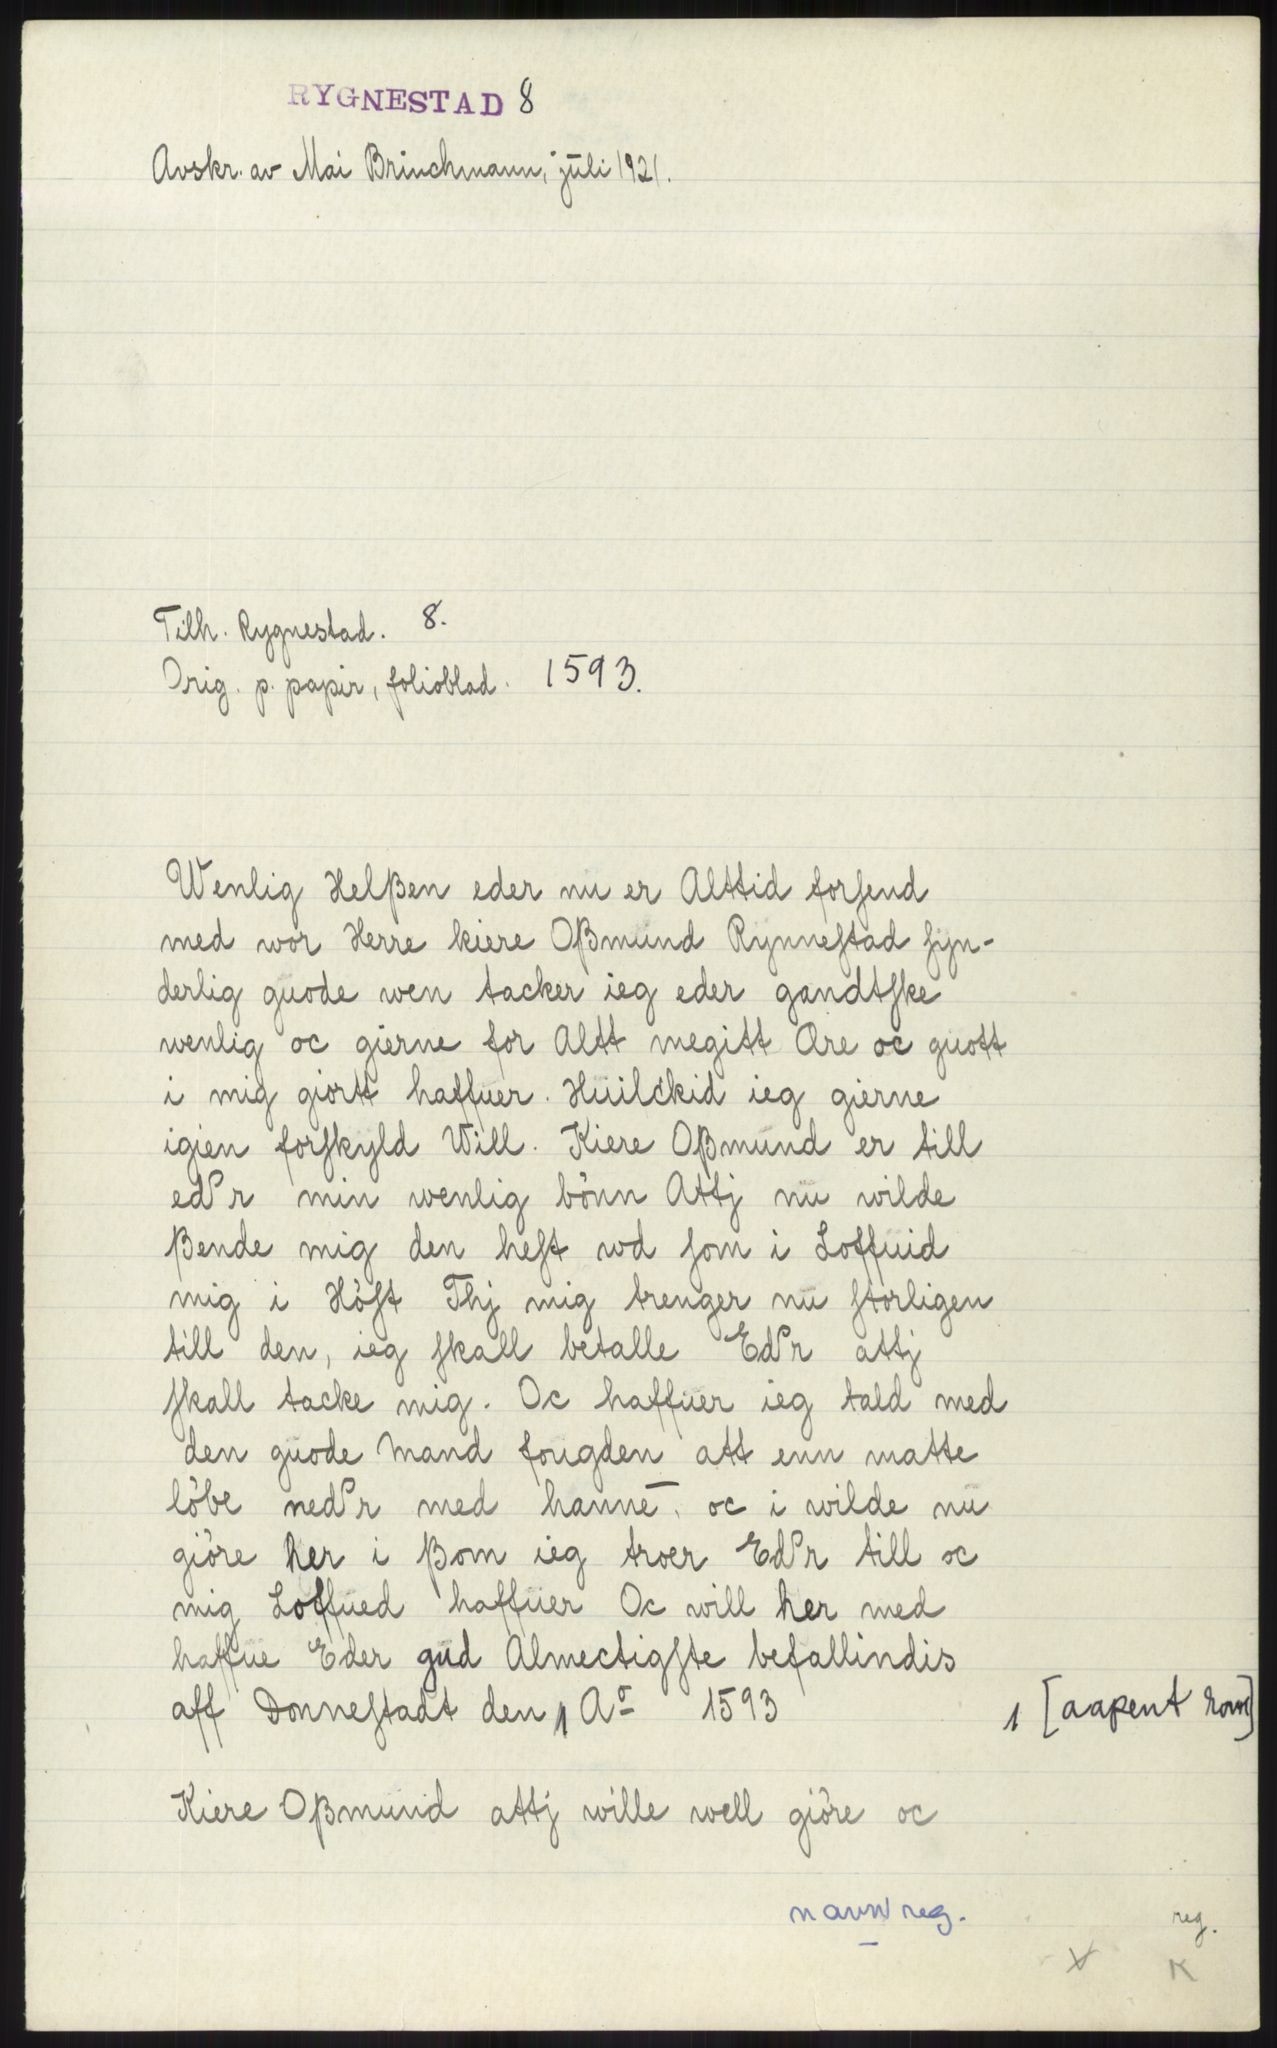 RYGNESTAD 8
Avskr. av Mai Brinchmann, juli 1921.
Tilh. Rygnestad. 8.
Orig. p. papir, folioblad. 1593.
Wenlig Helßen eder nu er Alttid forſend
med wor Herre kiere Oßmund Rynneſtad ſyn-
derlig guode wen tacker ieg eder gandtſke
wenlig oc gierne for Altt megitt Ære oc guott
i mig giortt haffuer. Huilckid ieg gierne
igien forſkyld Will. Kiere Oßmund er till
eder min wenlig bönn Attj nu wilde
ßende mig den heſt wd ſom i Loffuid
mig i Höſt Thj mig trenger nu ſtorligen
till den, ieg ſkall betalle Eder attj
ſkall tacke mig. Oc haffuer ieg tald med
den guode Mand fougden att enn matte
löbe neder med hanne, oc i wilde nu
giöre her i ßom ieg troer Eder till oc
mig Loffued haffuer Oc will her med
haffue Eder gud Almectigſte befallindis
aff Donneſtadt den 1 Aº 1593
1 [aapent rom]
Kiere Oßmund attj wille well giöre oc
navn reg.
reg.